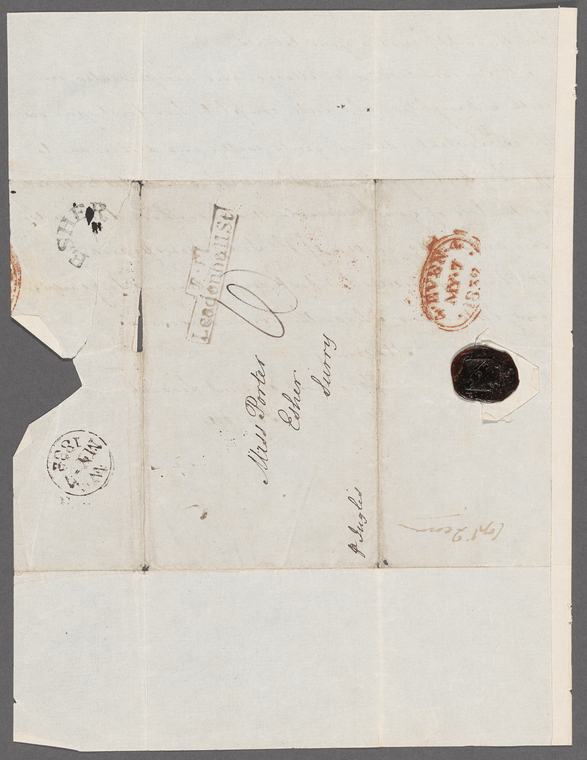 Miss Porter
Esher
Surry
P Inglis
T.P
Leadenhall St
ESHER
7. EVEN. 
MY. 7
1832
MY 7
1832